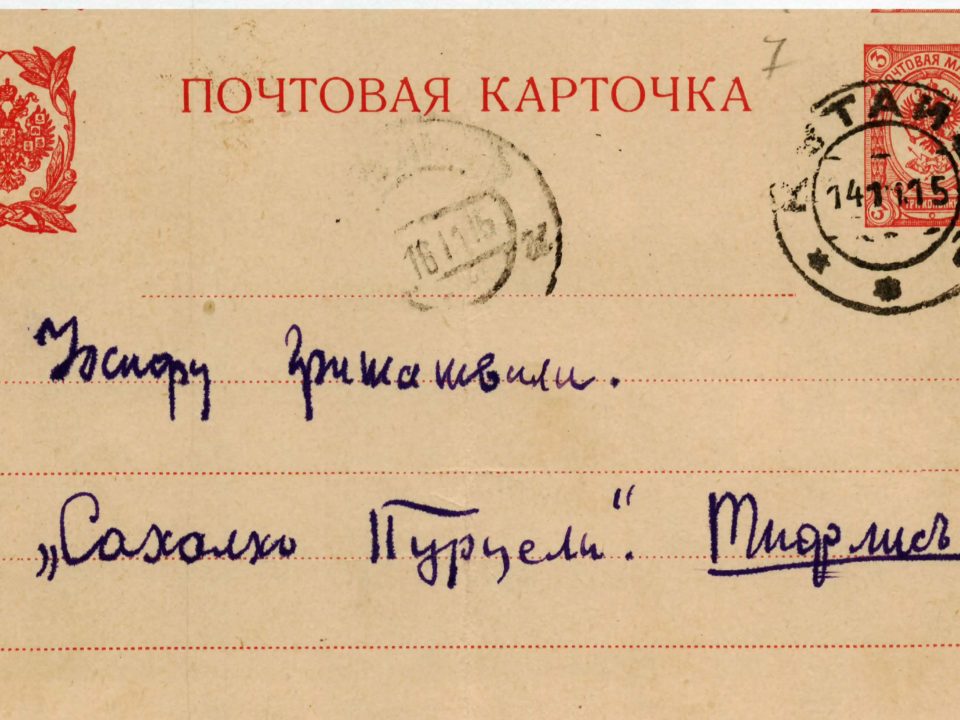 7
ПОЧТОВАЯ КАРТОЧКА
3
ПОЧТОВАЯ МА
14 1 15
16 1 15
3
Іосифу Гришашвили.
„Сахалхо Пурцели“. Тифлисъ